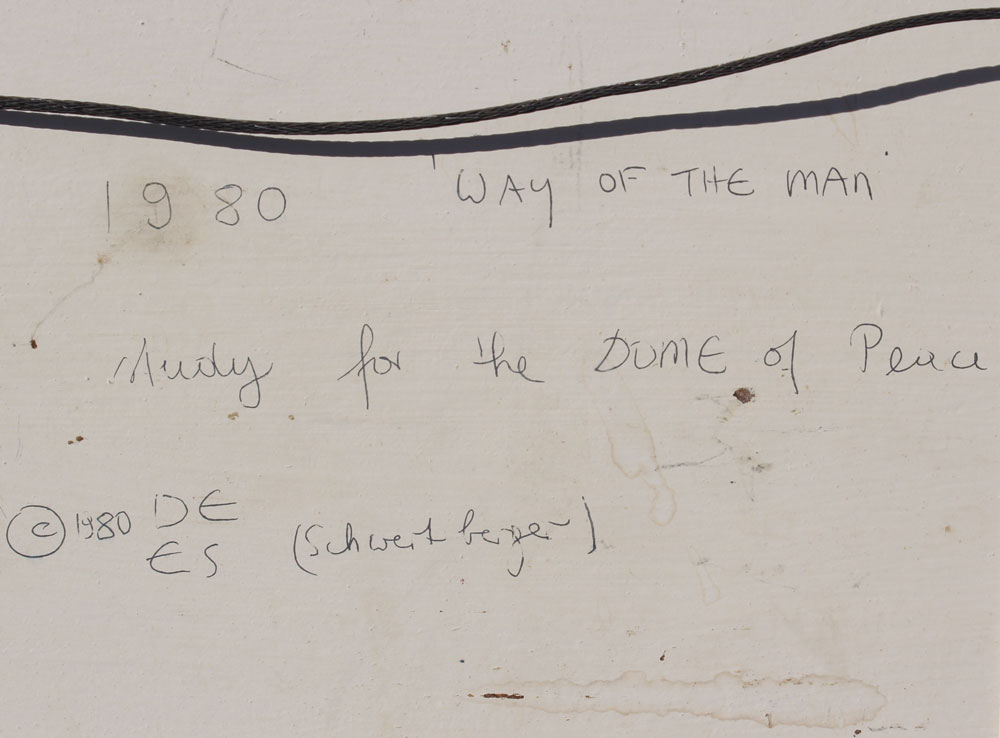 1980 'WAY OF THE MAN'
study for the DOME of Peace
© 1980 DE
ES (Schwertberger)